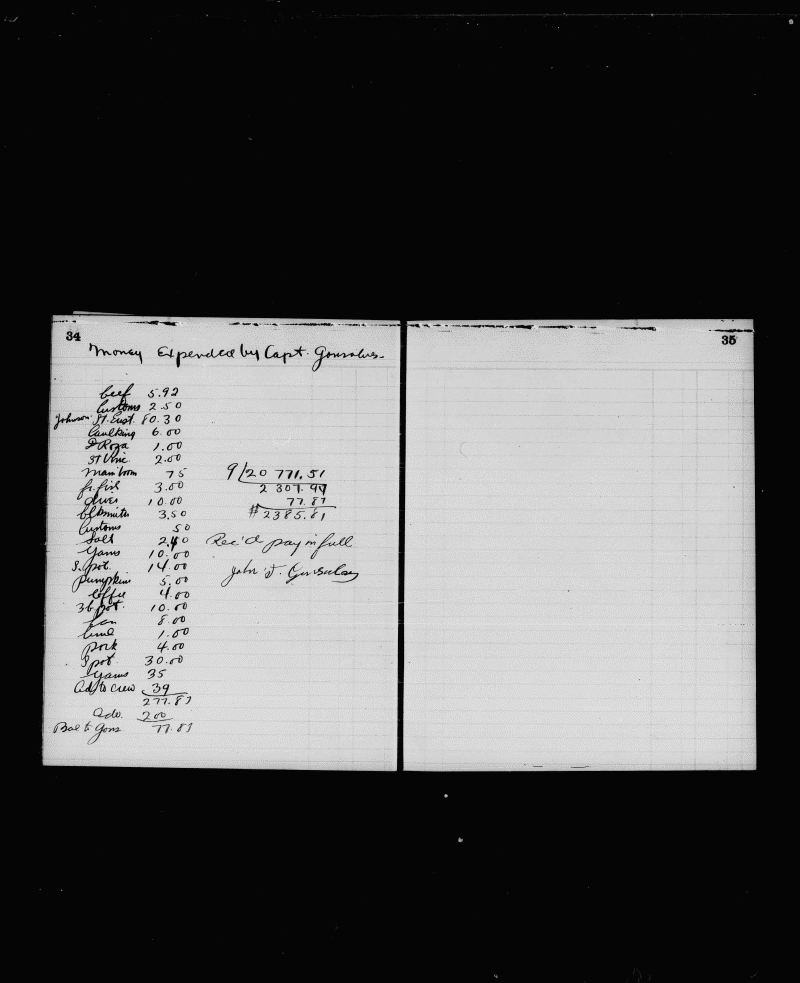 34
Money Expended by Capt. Gonsalves.
beef 5.92
Customs 2.50
Johnson St. Eust. 80.30
Caulking 6.00
D Roza 1.00
St Vinc. 2.00
Main boom 75
fr. fish 3.00
10.00
blksmith 3.50
Customs 50
Salt 2.40
Yams 10.00
S. pot. 14.00
pumpkins 5.00
Coffee 4.00
3 b pot. 10.00
8.00
lime 1.00
pork 4.00
S pot. 30.00
Yams 35
Ad. to crew 39
277.87
Adv. 200
Bal to Gons 77.87
9/20 771.51
2 307.94
77.87
$2385.81
Rec'd pay in full
John T. Gonsalves
35